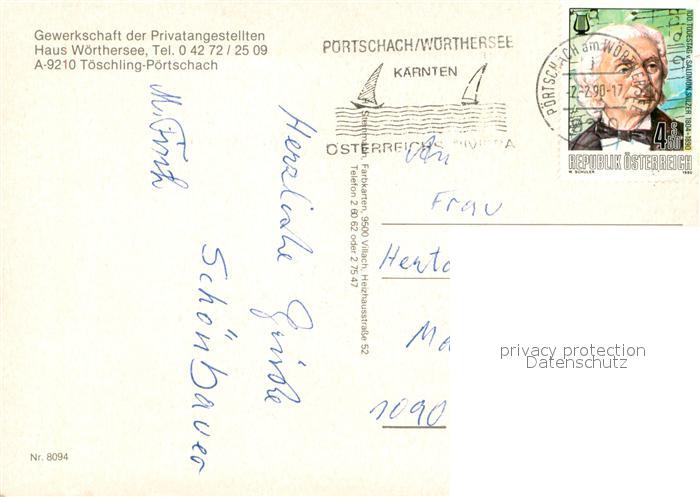 Gewerkschaft der Privatangestellten
Haus Wörthersee, Tel. 0 42 72 / 25 09
A-9210 Töschling-Pörtschach
PÖRTSCHACH/WÖRTHERSEE
KÄRNTEN
ÖSTERREICHS RIVIERA
PÖRTSCHACH am WÖRTHERSEE
-2.-2.90-17
100. TODESTAG v. SALOMON SULZER 1804-1890
4.50
REPUBLIK ÖSTERREICH
W. SCHULER 1990
Herzliche Grüße
Schönbauer
Steinmann, Farbkarten, 9500 Villach, Heizhausstraße 52
Telefon 2 60 62 oder 2 75 47
An
Frau
Herta
Ma
1090
privacy protection
Datenschutz
Nr. 8094